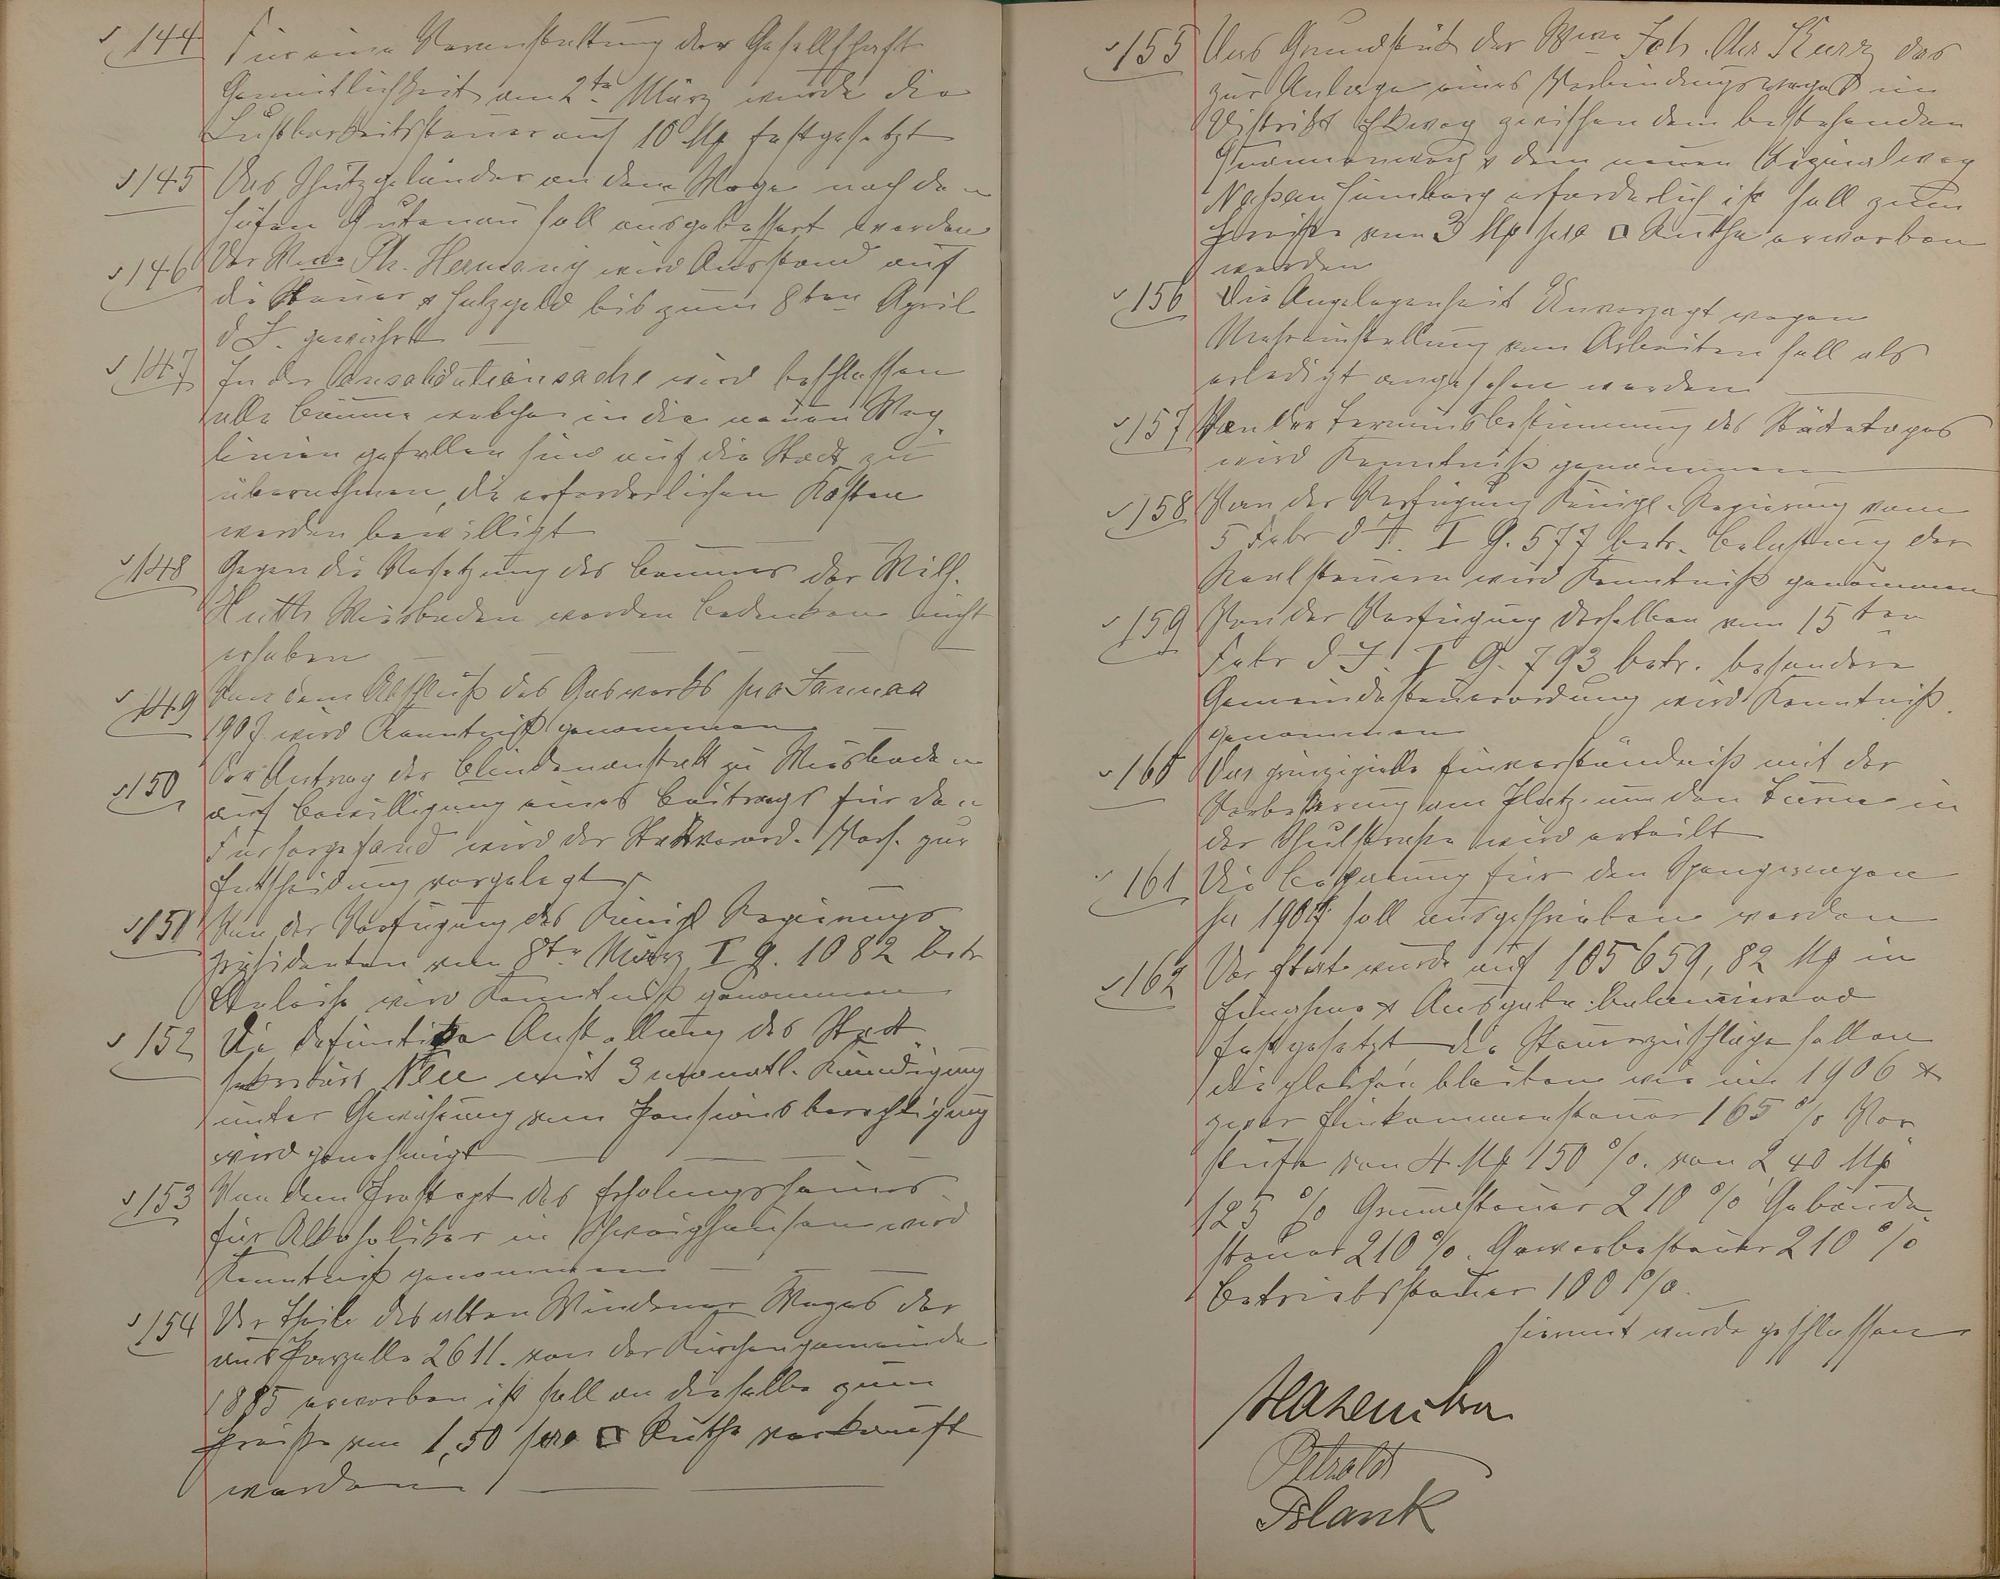 144 Für eine Veranstaltung der Gesellschaft
Gemütlichkeit am 2ten März wurde die
Lustbarkeitssteuer auf 10 Mk festgesetzt
145 Das Schutzgeländer an dem Wege nach den
Höfen Gutenau soll ausgebessert werden
146 Der Wwe Ph. wird Ausstand auf
die Steuer & Holzgeld bis zum 8ten April
d J. gewährt
147 In der Consolidationsache wird beschlossen
alle Bäume welche in die neuen Weg
linien gefallen sind auf die Stadt zu
übernehmen, die erforderlichen Kosten
werden bewilligt
148 Gegen die Versetzung des Baumes der Wilh.
Huth Wiesbaden werden Bedenken nicht
erhoben
149 Von dem Abschluß des Gaswerks pro Januar
1907 wird Kenntniß genommen
150 Der Antrag der Blindenanstalt zu Wiesbaden
auf Bewilligung eines Beitrags für den
Fürsorgefond wird der Stadtverord. Vers. zur
Entscheidung vorgelegt
151 Von der Verfügung des Königl Regierungs
präsidenten vom 8ten März I G. 1082 betr
Anleihe wird Kenntniß genommen
152 Die definitive Anstellung des Stadt
sekretärs mit 3 monatl. Kündigung
unter Gewährung von Pensionsberechtigung
wird genehmigt
153 Von dem Prospept des Erholungsheimes
für Alkoholiker in Schweighausen wird
Kenntniß genommen
154 Der Theile des alten Windener Weges der
aus Parzelle 2611. von der Kirchengemeinde
1885 erworben ist soll an dieselbe zum
Preise von 1,50 pro □ Ruthe verkauft
werden
155 Das Grundstück der Wwe Joh. Kurz das
zur Anlage eines Verbindungsweges im
Distrikt zwischen dem bestehenden
& dem neuen Vizinalweg
Nassau Homberg erforderlich ist soll zum
Preise von 3 Mk pro □ Ruthe erworben
werden
156 Die Angelegenheit Unverzagt wegen
von Arbeiten soll als
erledigt angesehen werden
157 Von der Terminsbestimmung des Städtetages
wird Kenntniß genommen
158 Von der Verfügung Königl. Regierung vom
5 Febr d J. I G. 577 betr. Belastung der
Realsteuern wird Kenntniß genommen
159 Von der Verfügung derselben vom 15ten
Febr d J. I G. 793 betr. besondere
Gemeindesteuerordnung wird Kenntniß
genommen
160 Das prinzipielle Einverständniß mit der
Verbesserung am Platz um den Turm in
der Schulstraße wird erteilt
161 Die Bespannung für den Sprengwagen
pr 1907 soll ausgeschrieben werden
162 Der Etat wurde auf 105659,82 Mk in
Einnahme & Ausgabe balancierend
festgesetzt die Steuerzuschläge sollen
die gleichen bleiben wie in 1906 &
zwar Einkommensteuer 165 % Vor
stufe von 4 Mk 150 %. von 2 40 Mk
125 % Grundsteuer 210 % Gebäude
steuer 210 %. Gewerbesteuer 210 %
Betriebssteuer 100 %.
hiermit wurde geschlossen
Hasenclever
Blank